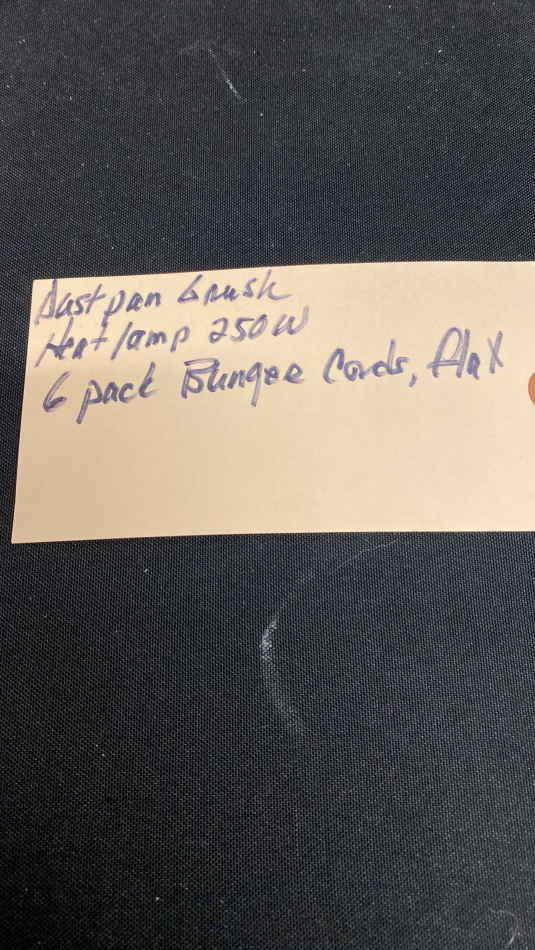 Dustpan brush
Heat lamp 250W
6 pack Bungee Cords,